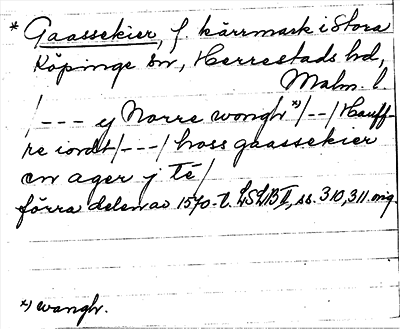 * Gaassekier, f. kärrmark i Stora
Köpinge sn, Herrestads hd,
Malm. l.
/--- y Norre wongh *) /--/ Hauff-
re iordt /---/ hoss gaassekier
en ager j té /
förra delen av 1570-t. LSLB II, ss. 310, 311. orig.
*) wangh.